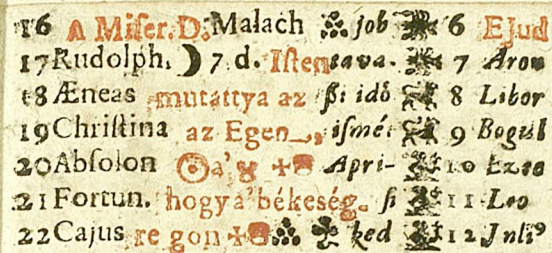 16 A Miser. D. Malach job 6 E Jud
17 Rudolph. ☽ 7. d. Isten tava- 7 Aron
18 Æneas mutattya az ßi idő 8 Libor
19 Christina az Egen, ismét 9 Bogisl
20 Absolon ☉ a' Apri- 10 Eze
21 Fortun. hogy a' békeség. si 11 Leo
22 Cajus re gon ked 12 Juli9